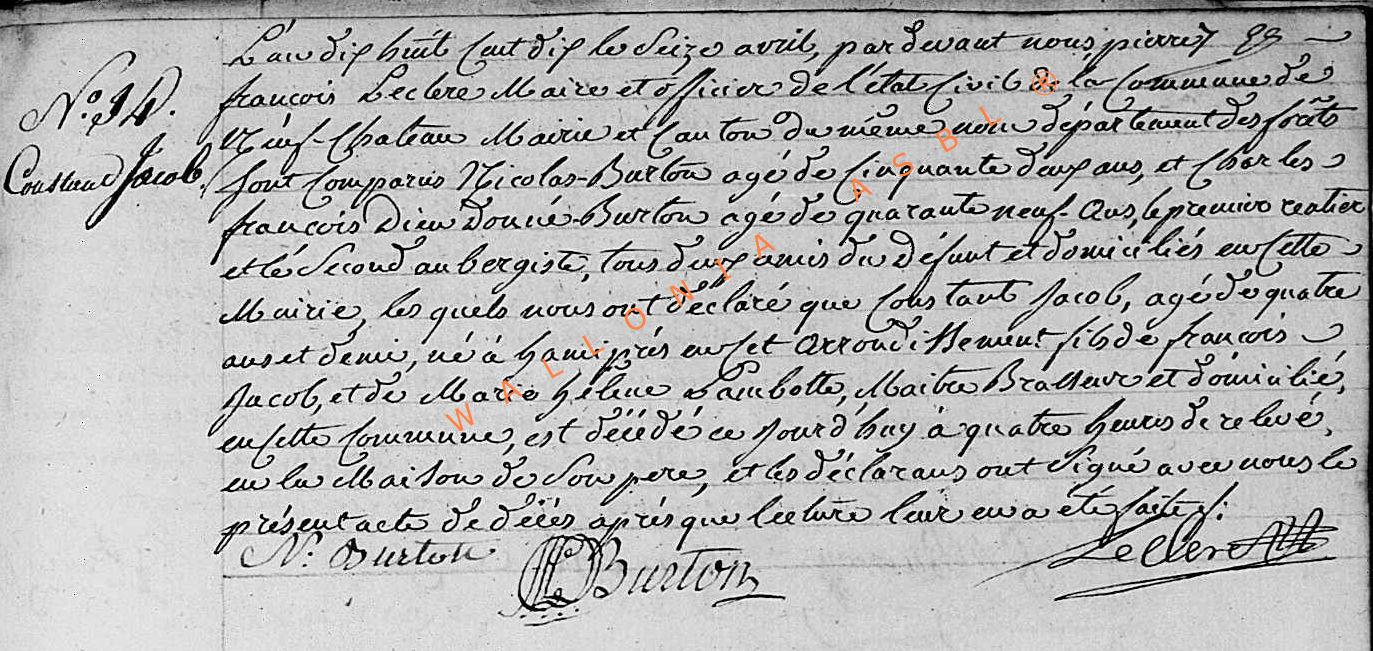 L'an dix huit Cent dix le Seize avril, par devant nous pierre
N.o 14.
françois Leclere Maire et officier de l'état Civil de la Commune de
Neuf-Chateau Mairie et Canton du même nom département des forêts
Constant Jacob.
sont Comparus Nicolas-Burton agé de Cinquante deux ans, et Charles
françois Dieu donné-Burton agé de quarante neuf-ans, le premier rentier
et le Second aubergiste, tous deux amis du Défunt et domiciliés en Cette
Mairie, les quels nous ont déclaré que Constant Jacob, agé de quatre
ans et demi, né à hamipré en Cet Arrondissement fils de françois
Jacob, et de Marie hélène Lambotte, Maitre Brasseur et domicilié,
en Cette Commune, est décédé ce Jourd'huy à quatre heures de relevé,
en la Maison de Son pere, et les déclarans ont Signé avec nous le
présent acte de décès après que lecture leur en a été faite ./.
N. Burton
Burton
LeClere
WALLONIA ASBL ®